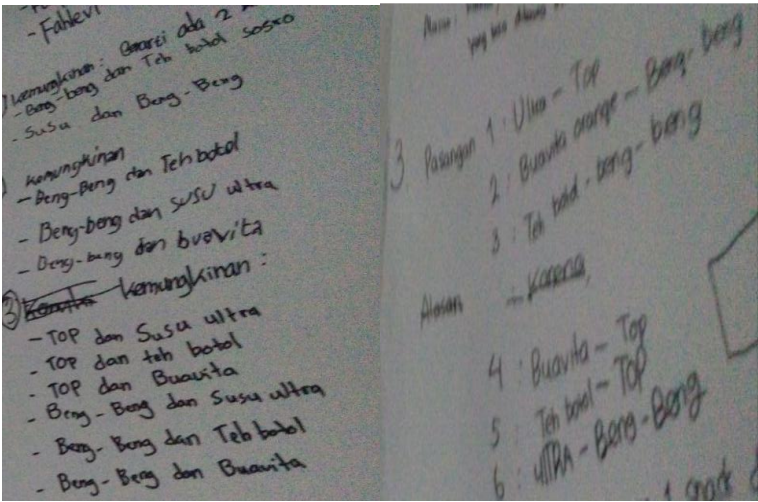 - Fahlevi
kemungkinan : ada 2
- Beng-beng dan Teh botol sosro
- Susu dan Beng-Beng
kemungkinan
- Beng-Beng dan Teh botol
- Beng-beng dan susu ultra
- Beng-beng dan buavita
③ kemungkinan :
- TOP dan Susu ultra
- TOP dan teh botol
- TOP dan Buavita
- Beng-Beng dan Susu ultra
- Beng-Beng dan Teh botol
- Beng-Beng dan Buavita
yang bisa
3. Pasangan 1 : Ultra - Top
2 : Buavita orange - Beng-beng
3 : Teh botol - beng-beng
Alasan - Karena,
4 : Buavita - Top
5 : Teh botol - TOP
6 : ULTRA - Beng-Beng
1 snack